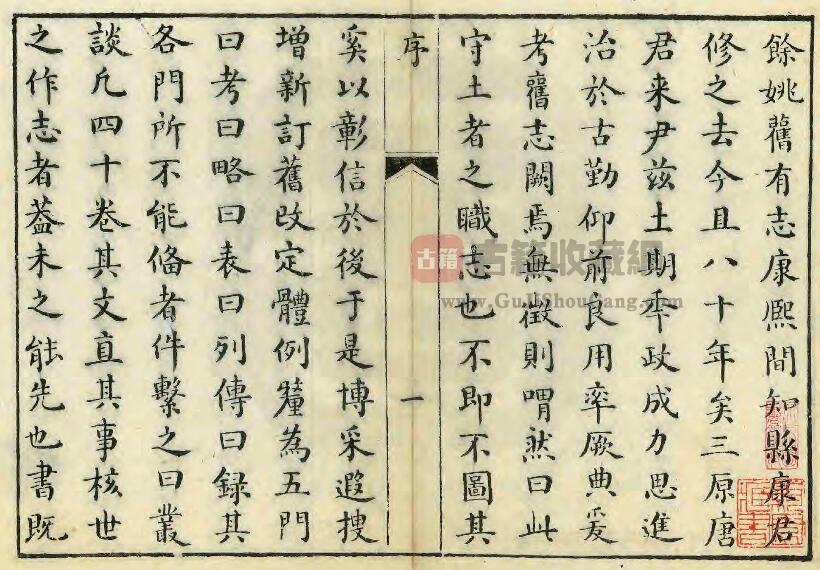 餘姚舊有志康熙間知縣康君
修之去今且八十年矣三原唐
君来尹兹土期年政成力思進
治於古勤仰前良用率厥典爰
考舊志闕焉無徵則喟然曰此
守土者之職志也不即不圖其
序
一
奚以彰信於後于是博采遐搜
增新訂舊改定體例釐為五門
曰考曰略曰表曰列傳曰録其
各門所不能偹者件繫之曰叢
談凡四十卷其文直其事核世
之作志者葢未之能先也書既
古籍
古籍收藏網
www.GuJiShouCang.com